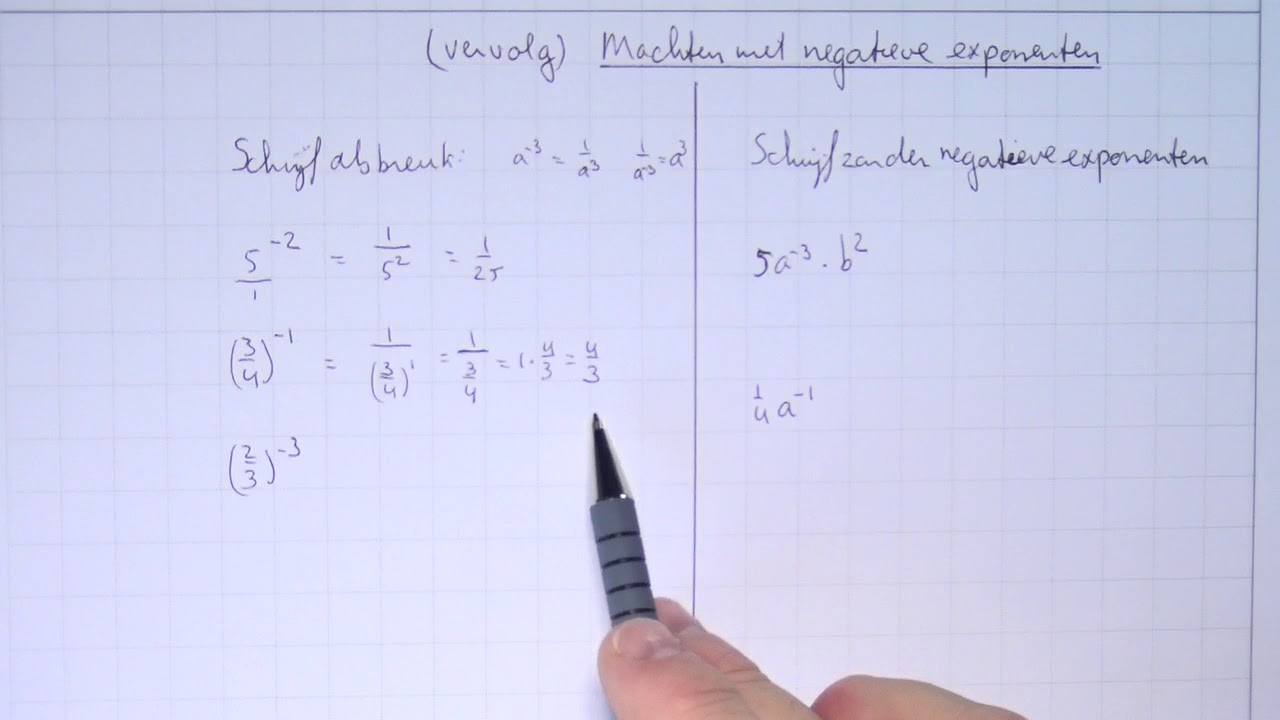 (vervolg) Machten met negatieve exponenten
Schrijf als breuk: a⁻³ = 1/a³ 1/a⁻³ = a³
5⁻²/1 = 1/5² = 1/25
(3/4)⁻¹ = 1/(3/4)¹ = 1/(3/4) = 1 · 4/3 = 4/3
(2/3)⁻³
Schrijf zonder negatieve exponenten
5a⁻³ · b²
1/4 a⁻¹